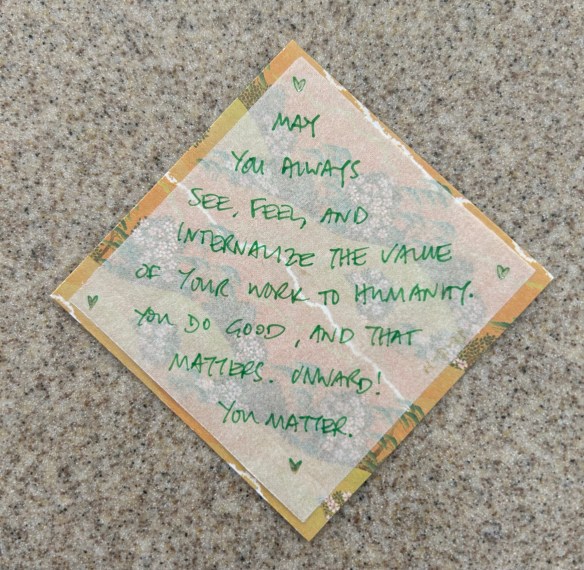 MAY
YOU ALWAYS
SEE, FEEL, AND
INTERNALIZE THE VALUE
OF YOUR WORK TO HUMANITY.
YOU DO GOOD, AND THAT
MATTERS. ONWARD!
YOU MATTER.